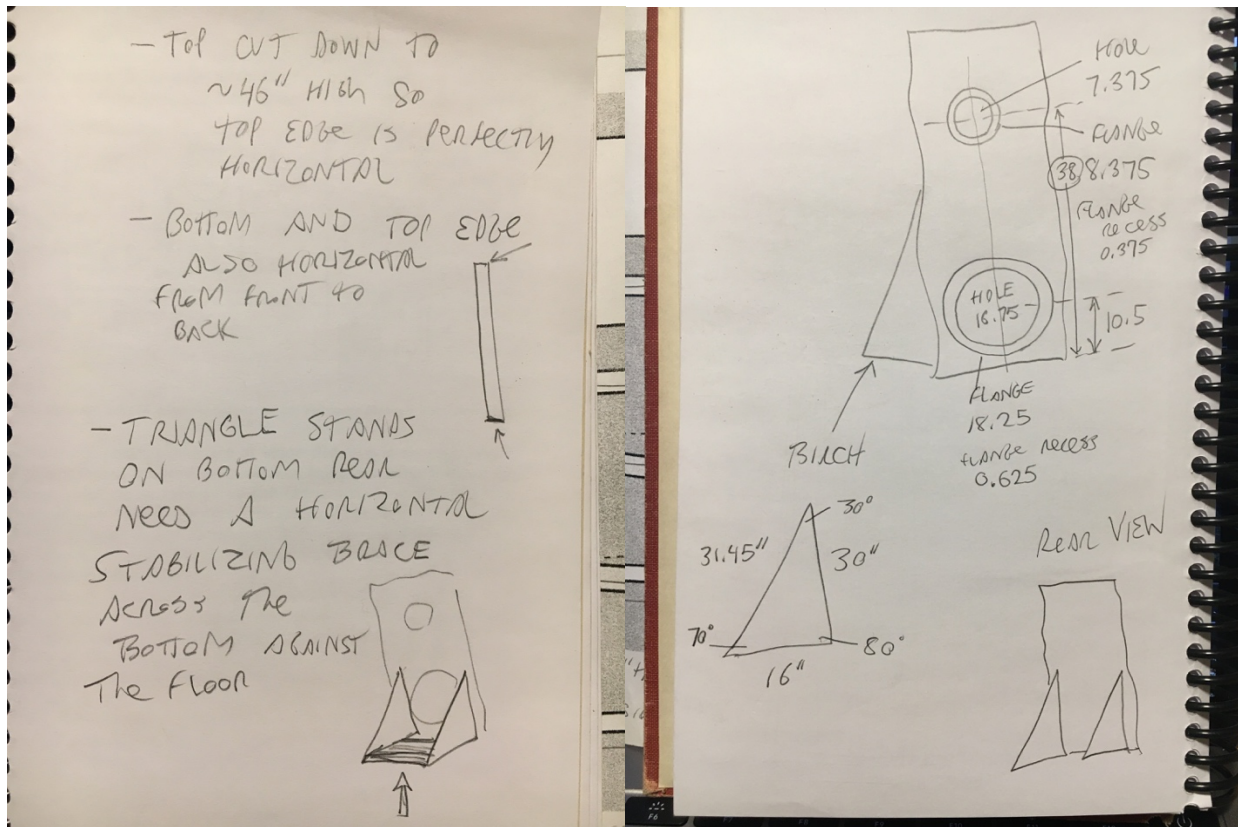 - TOP CUT DOWN TO
~46" HIGH SO
TOP EDGE IS PERFECTLY
HORIZONTAL
- BOTTOM AND TOP EDGE
ALSO HORIZONTAL
FROM FRONT TO
BACK
- TRIANGLE STANDS
ON BOTTOM REAR
NEED A HORIZONTAL
STABILIZING BRACE
ACROSS THE
BOTTOM AGAINST
THE FLOOR
HOLE
7.375
FLANGE
38 8.375
FLANGE
RECESS
0.375
HOLE
16.75
10.5
FLANGE
18.25
FLANGE RECESS
0.625
BIRCH
30°
31.45"
30"
70°
80°
16"
REAR VIEW
F6